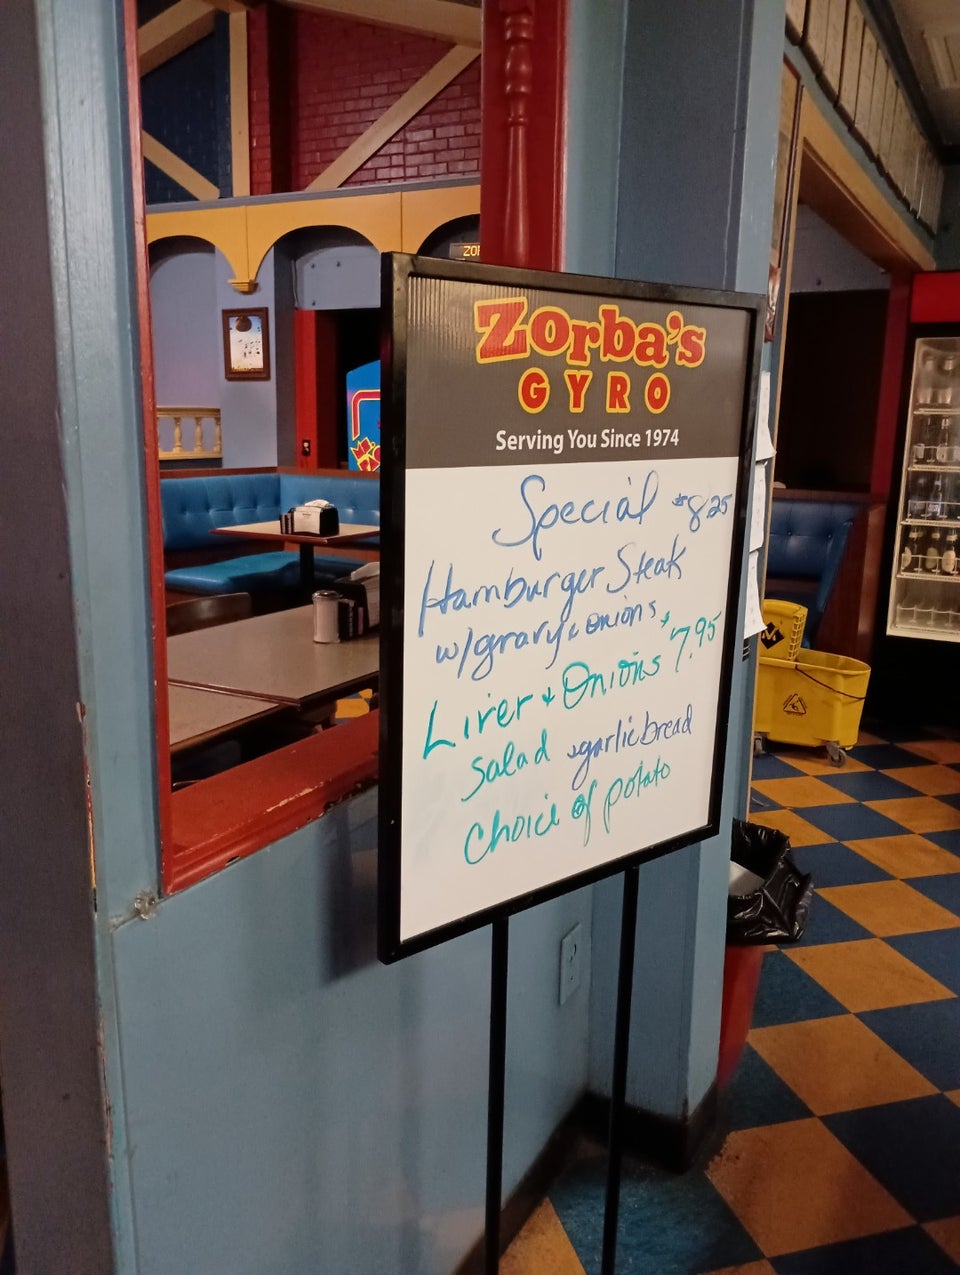 Zorba's
GYRO
Serving You Since 1974
Special $8.25
Hamburger Steak
w/gravy & onions
Liver & Onions $7.95
Salad & garlic bread
Choice of potato
ZOR